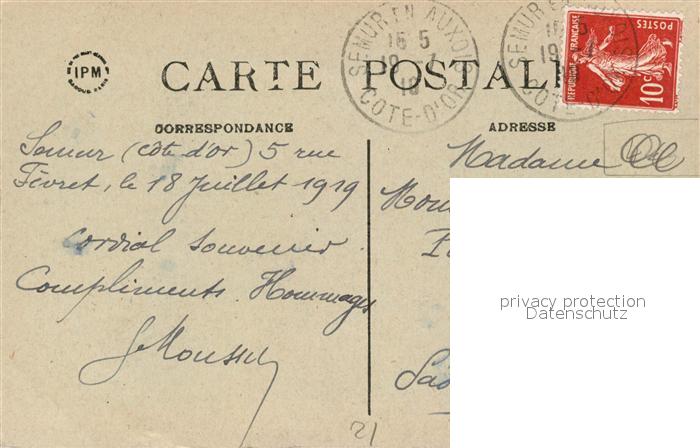 IPM
CARTE POSTALE
SEMUR EN AUXOIS
15 5
19 -7
19
CÔTE-D'OR
SEMUR EN AUXOIS
CÔTE-D'OR
RÉPUBLIQUE FRANÇAISE
POSTES
10c
CORRESPONDANCE
ADRESSE
Semur (Côte d'Or) 5 rue
Févret, le 18 Juillet 1919
Cordial souvenir
Compliments. Hommages
Madame
privacy protection
Datenschutz
21